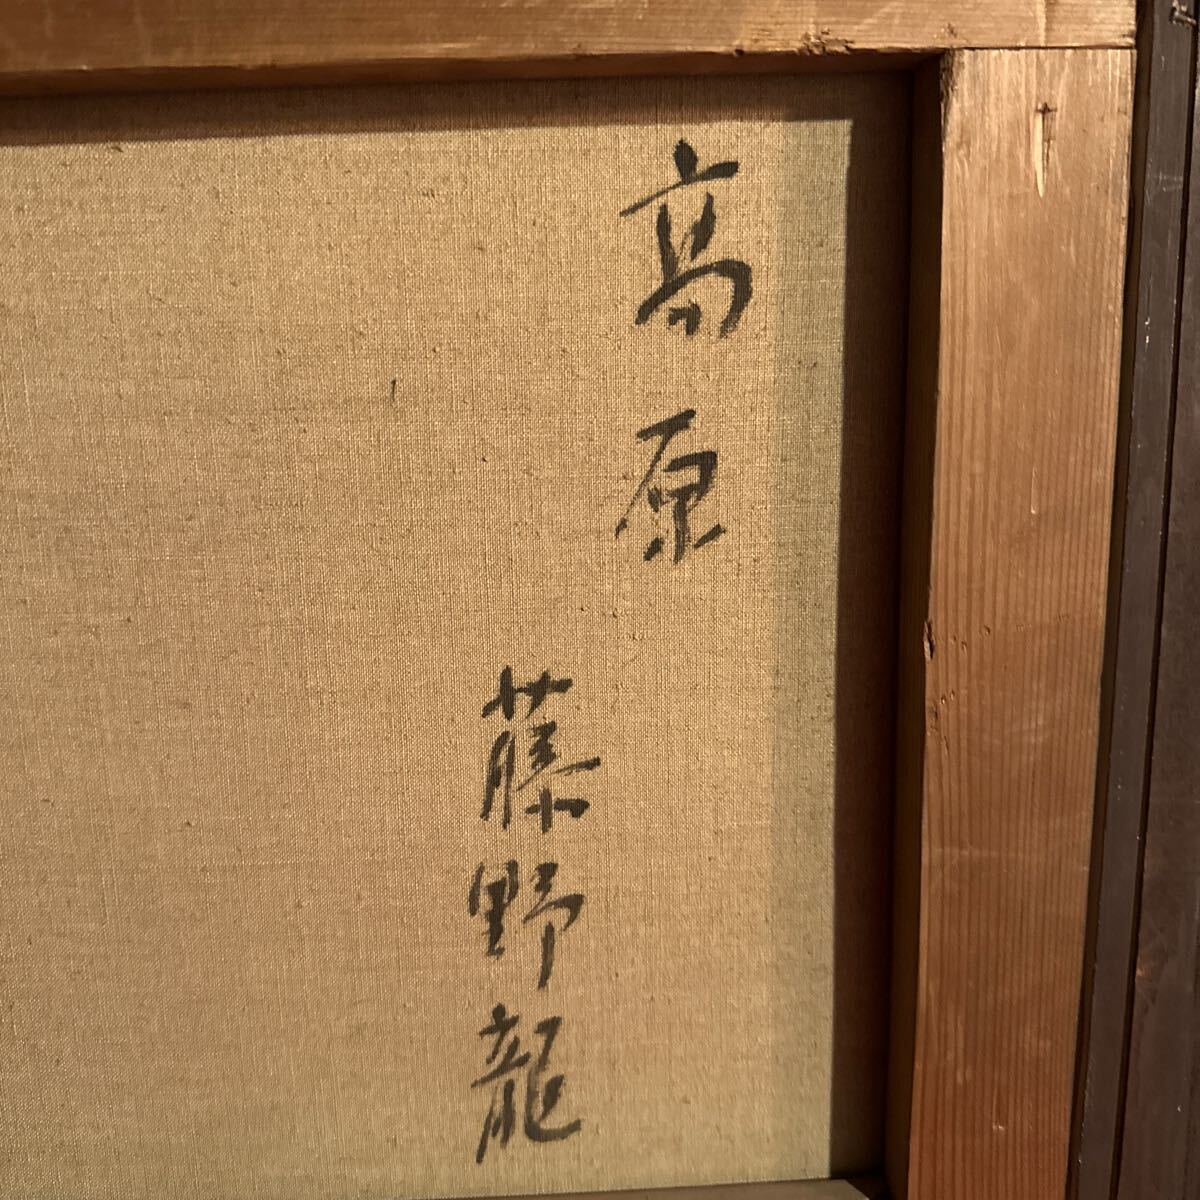 高原
藤野龍